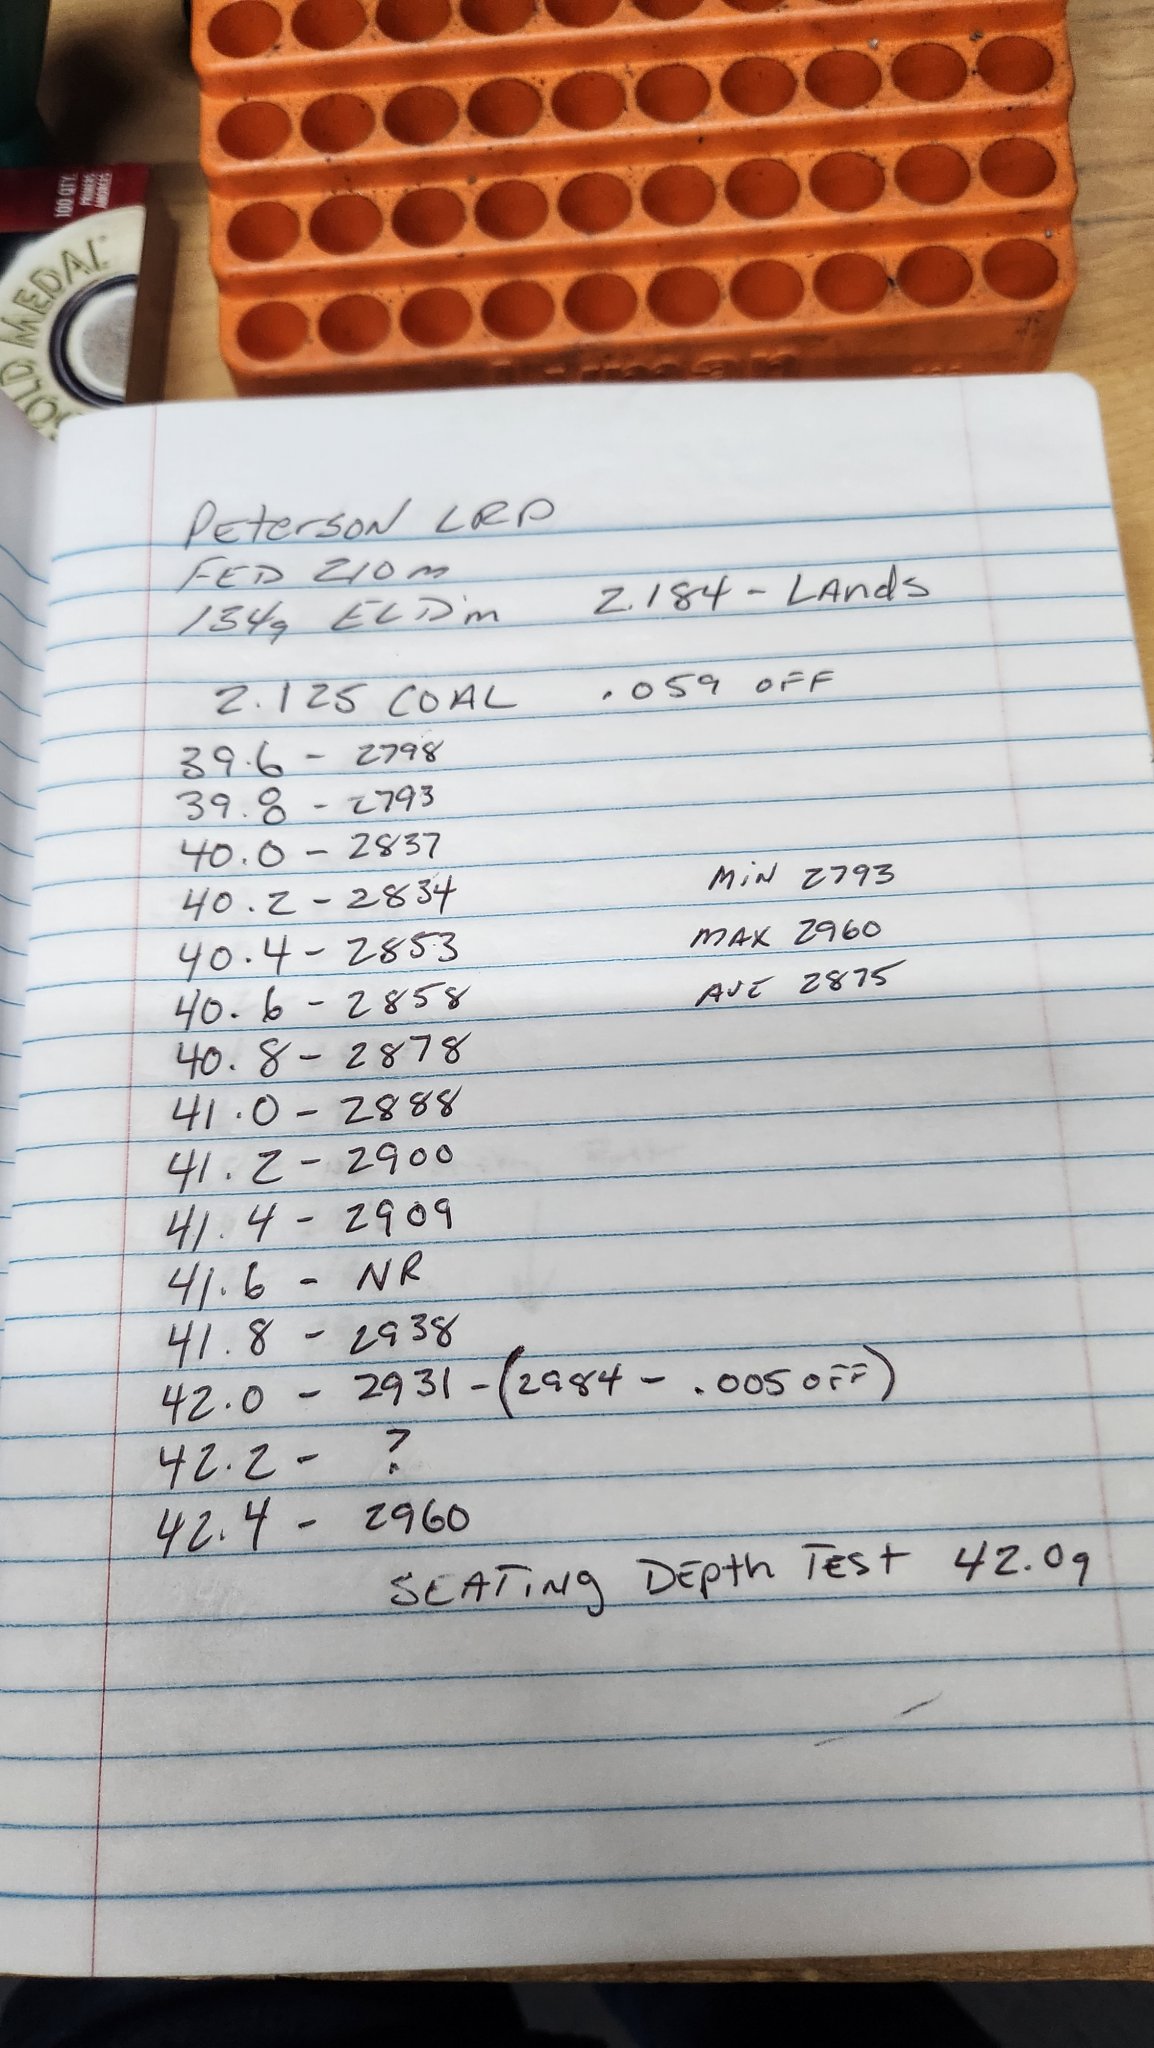 100 QTY.
PRIMERS
AMORCES
GOLD MEDAL
Peterson LRP
FED 210m
134g ELD'm 2.184 - LANds
2.125 COAL .059 OFF
39.6 - 2798
39.8 - 2793
40.0 - 2837
40.2 - 2834
MiN 2793
40.4 - 2853
MAX 2960
40.6 - 2858
AVE 2875
40.8 - 2878
41.0 - 2888
41.2 - 2900
41.4 - 2909
41.6 - NR
41.8 - 2938
42.0 - 2931 - (2984 - .005 OFF)
42.2 - ?
42.4 - 2960
SEATiNg DEpth TEST 42.0g